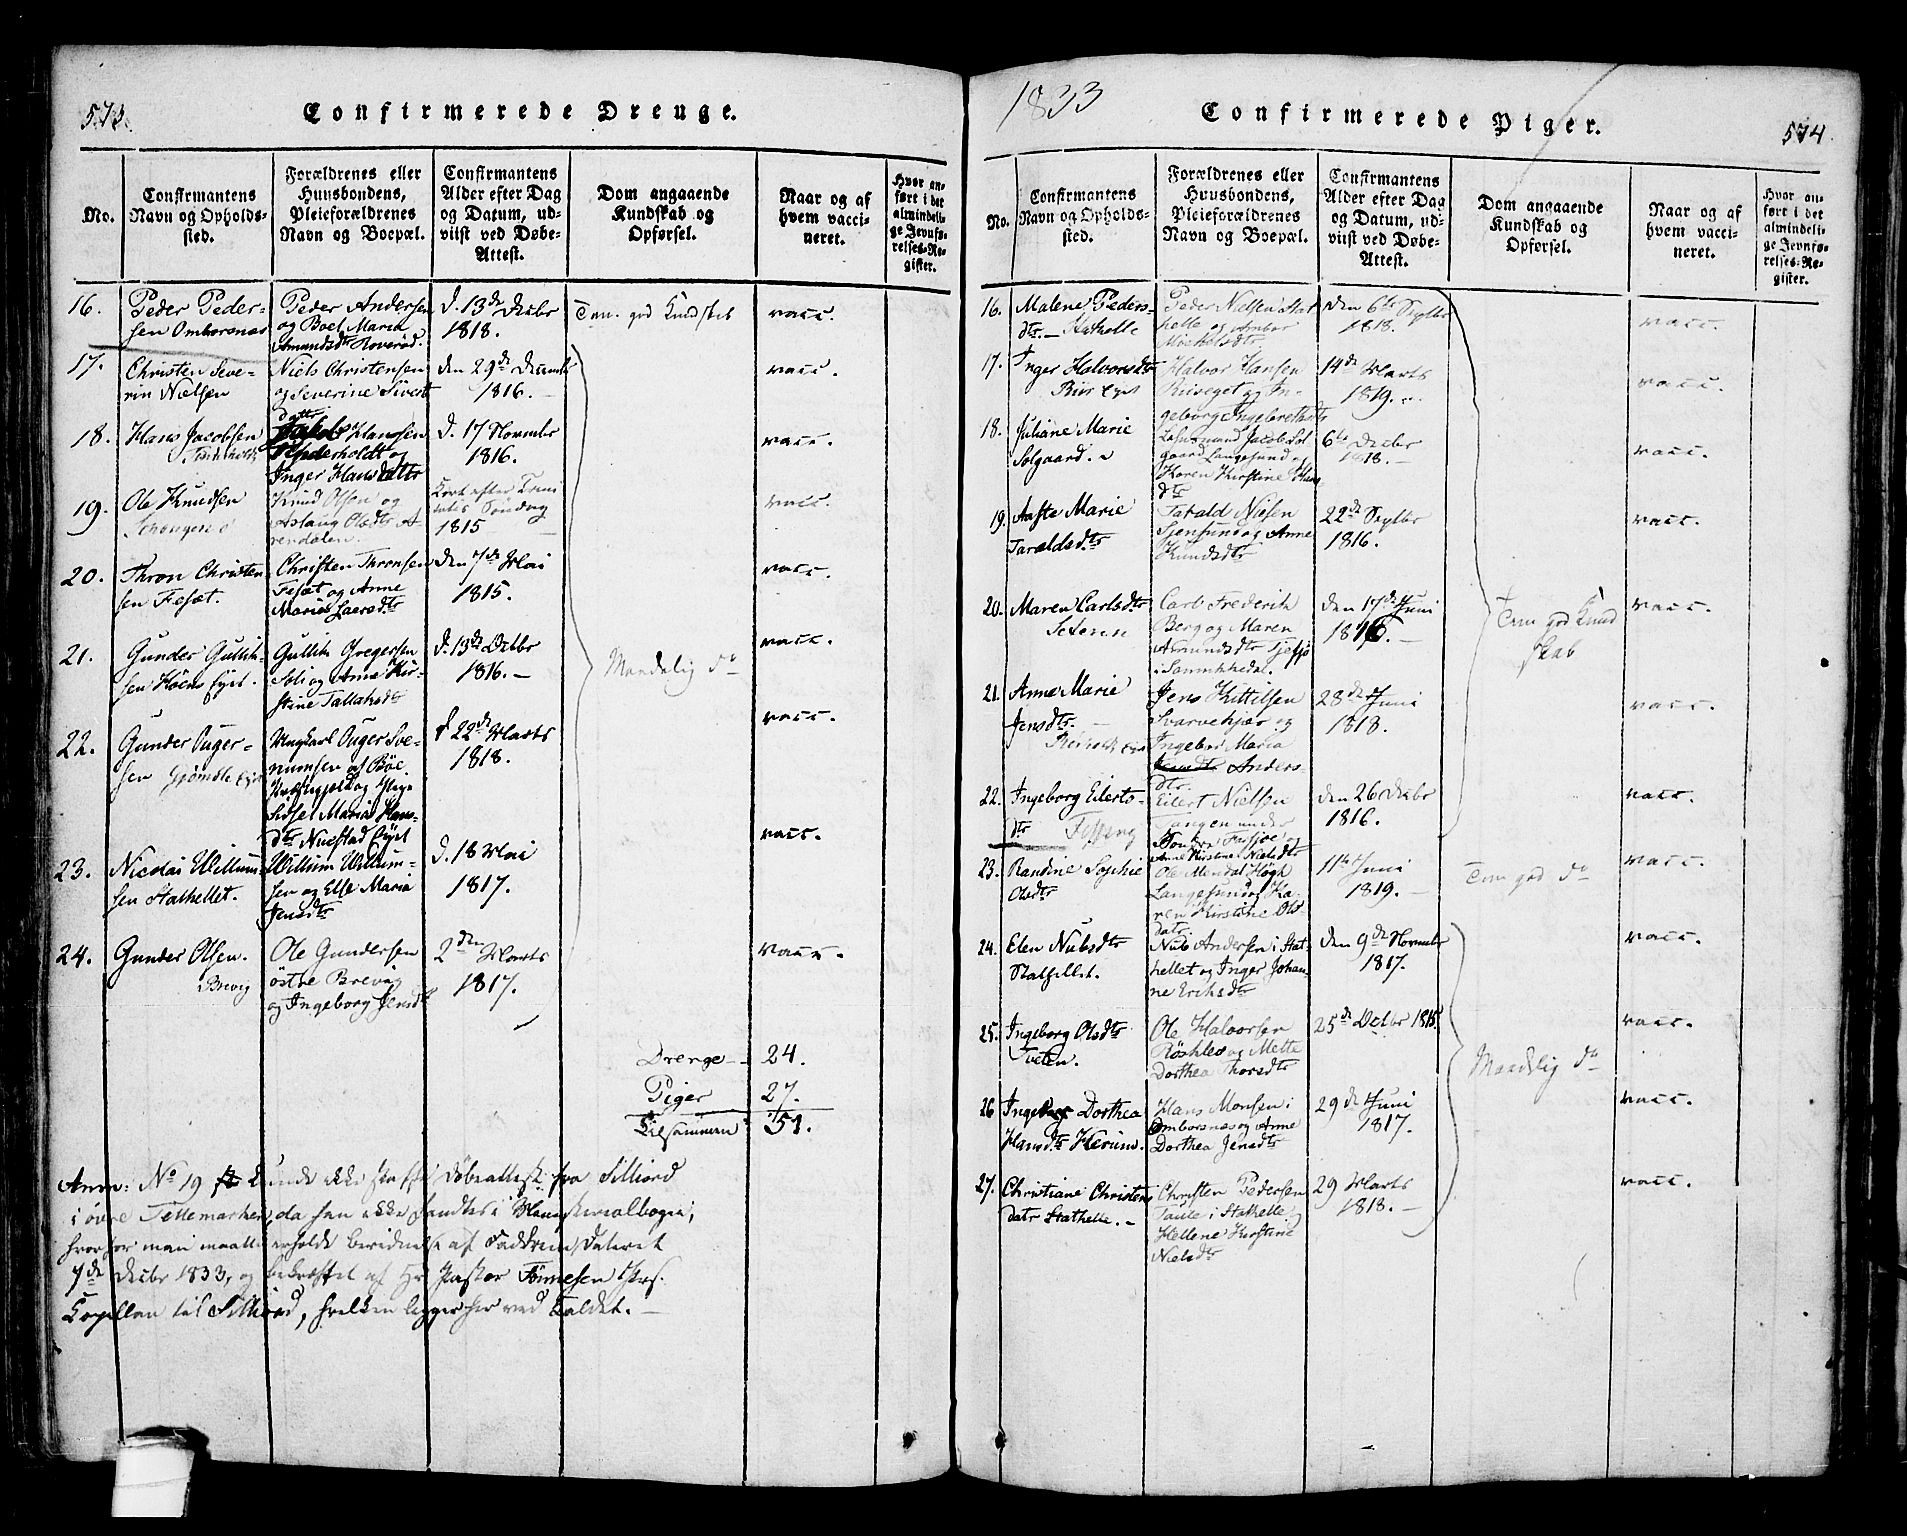 573.
Confirmerede Drenge.
No.
Confirmantens
Navn og Opholds-
sted.
Forældrenes eller
Huusbondens,
Pleieforældrenes
Navn og Boepæl.
Confirmantens
Alder efter Dag
og Datum, ud-
viist ved Døbe-
Attest.
Dom angaaende
Kundskab og
Opførsel.
Naar og af
hvem vacci-
neret.
Hvor an-
ført i det
almindeli-
ge Jevnfø-
relses-Re-
gister.
16.
Peder Peder-
sen Omborsnæs
Peder Andersen
og Boel Maria
Amundsdtr
d. 13de Decbr
1818.
god Kundskab
vacc.
17.
Christen Seve-
rin Nielsen
Niels Christensen
og Severine Sivert
datter
den 29de December
1816.
vacc.
18.
Hans Jacobsen
Jakob Hansen
og
Inger Hansdatter
d. 17 Novmbr
1816.
vacc.
19.
Ole Knudsen
Knud Olsen og
Aslaug Olsdtr
Søndag
1815
vacc.
20.
Thron Christen
sen Fesæt.
Christen Thronsen
Fesæt og Anne
Maria Larsdtr
den 7de Mai
1815.
vacc.
21.
Gunder Gullik-
sen
Gullik Gregersen
og Anne Kir-
stine
d. 13de Octbr
1816.
Maadelig do
vacc.
22.
Gunder Auger-
sen
Ungkarl Auger Sve-
af Böe
og Pige
Sidsel Maria Hans-
dtr
d. 22de Marts
1818.
vacc.
23.
Nicolai Willum-
sen Stathellet.
Willum Willum-
sen og Else Maria
Jensdtr
d. 18 Mai
1817.
vacc.
24.
Gunder Olsen.
Brevig
Ole Gundersen
östre Brevig
og Ingeborg Jensdtr
2den Marts
1817.
vacc.
Drenge 24.
Piger 27.
Tilsammen 51.
Anm: No 19 kunde ikke Döbeattest fra Silliord
i övre Tellemarken, da han ikke fandtes i Ministerialbogen,
hvorfor man maatte erholde af Faddrene, dateret
7de Decbr 1833, og bekræftet af Hr Pastor
Capellan til Silliord, hvilken ligger her ved
1833
Confirmerede Piger.
574.
No.
Confirmantens
Navn og Opholds-
sted.
Forældrenes eller
Huusbondens,
Pleieforældrenes
Navn og Boepæl.
Confirmantens
Alder efter Dag
og Datum, ud-
viist ved Døbe-
Attest.
Dom angaaende
Kundskab og
Opførsel.
Naar og af
hvem vacci-
neret.
Hvor an-
ført i det
almindeli-
ge Jevnfø-
relses-Re-
gister.
16.
Malene Peders-
dtr. Stathelle
Peder Nielsen Stat
helle og
Michelsdtr
den 6te Septbr
1818.
vacc.
17.
Inger Halvorsdtr
Halvor Hansen
og In-
geborg Ingebretsdtr
14de Marts
1819.
vacc.
18.
Juliane Marie
Solgaard.
Jacob Sol
gaard Langesund og
Karen Kirstine
dtr
6te Decbr
1818.
vacc.
19.
Aaste Marie
Taraldsdtr
Tarald Nielsen
og Anne
Knudsdtr
22de Septbr
1816.
vacc.
20.
Maren Carlsdtr
Carl Frederik
Berg og Maren
Amundsdtr
i
den 17de Juni
1816.
god Kund
skab
vacc.
21.
Anne Marie
Jensdtr.
Jens Kittilsen
Svarvekjær og
Ingebor Maria
Anders-
dtr.
28de Juni
1818.
vacc.
22.
Ingeborg Eilerts-
dtr
Eilert Nielsen
Tangen under
og
Anne Kirstine Nielsdtr
den 26 Decbr
1816.
vacc.
23.
Randine Sophie
Olsdtr
Ole Mendal Högh
Langesund og Ka-
ren Kirstine Ols-
datr.
11te Juni
1819.
god do
vacc.
24.
Elen Nubsdtr
Stathellet.
Nub Andersen i Stat-
hellet og Inger Johan-
ne Eriksdtr
den 9de Novmbr
1817.
vacc.
25.
Ingeborg Olsdtr
Tveten.
Ole Halvorsen
og Mette
Dorthea Thorsdtr
25de Octbr 1815
Maadelig do
vacc.
26
Ingeborg Dorthea
Hansdtr
Hans Monsen i
Omborsnæs og Anne
Dorthea Jensdtr
29de Juni
1817.
vacc.
27.
Christiane Christens
datr Stathelle.
Christen Pedersen
i Stathelle og
Hellene Kirstine
Nielsdtr
29 Marts
1818.
vacc.